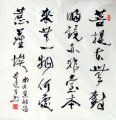 菩提本無樹
明鏡亦非臺本
來無一物何處
惹塵埃